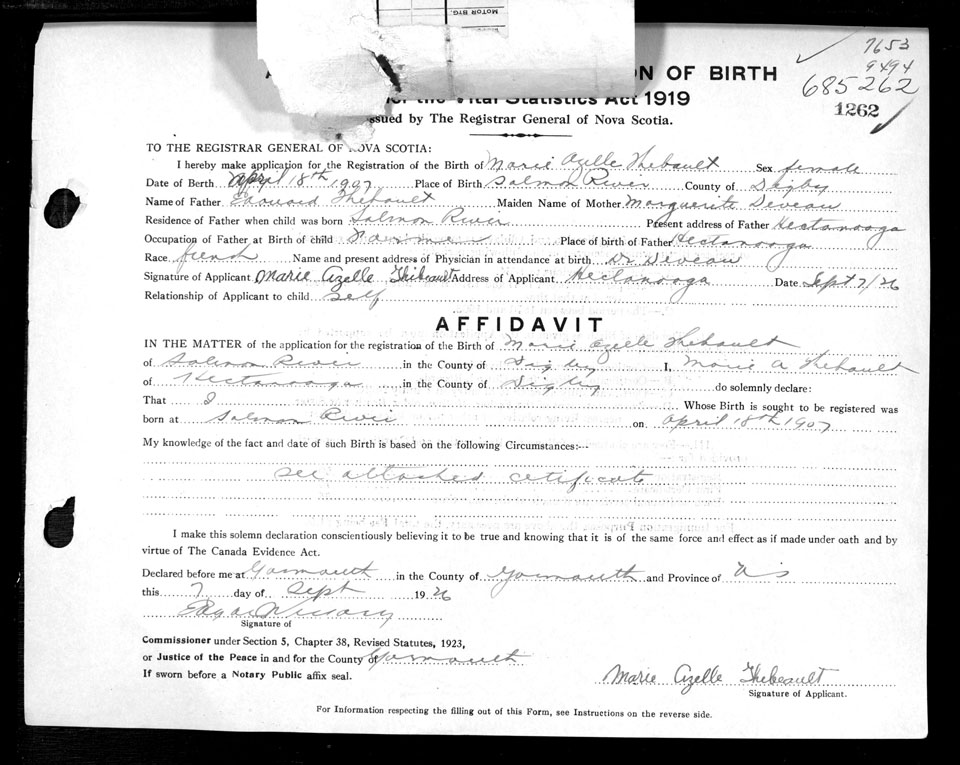 MOTOR BTG.
7653
9494
685262
1262
ON OF BIRTH
the Vital Statistics Act 1919
ssued by The Registrar General of Nova Scotia.
TO THE REGISTRAR GENERAL OF NOVA SCOTIA:
I hereby make application for the Registration of the Birth of Marie Azelle Thibault Sex female
Date of Berth April 18th 1907 Place of Birth Salmon River County of Digby
Name of Father Edouard Thibault Maiden Name of Mother Marguerite Deveau
Residence of Father when child was born Salmon River Present address of Father Hectanooga
Occupation of Father at Birth of child Farmer Place of birth of Father Hectanooga
Race french Name and present address of Physician in attendance at birth Dr Deveau
Signature of Applicant Marie Azelle Thibault Address of Applicant Hectanooga Date Sept 7/26
Relationship of Applicant to child self
AFFIDAVIT
IN THE MATTER of the application for the registration of the Birth of Marie Azelle Thebault
of Salmon River in the County of Digby I, Marie A Thebault
of Hectanooga in the County of Digby do solemnly declare:
That I Whose Birth is sought to be registered was
born at Salmon River on April 18th 1907
My knowledge of the fact and date of such Birth is based on the following Circumstances:---
see attached certificate
I make this solemn declaration conscientiously believing it to be true and knowing that it is of the same force and effect as if made under oath and by
virtue of The Canada Evidence Act.
Declared before me at Yarmouth in the County of Yarmouth and Province of N S
this 7 day of Sept 1926
Signature of
Commissioner under Section 5, Chapter 38, Revised Statutes, 1923,
or Justice of the Peace in and for the County of Yarmouth
If sworn before a Notary Public affix seal.
Marie Azelle Thibeault
Signature of Applicant.
For Information respecting the filling out of this Form, see Instructions on the reverse side.